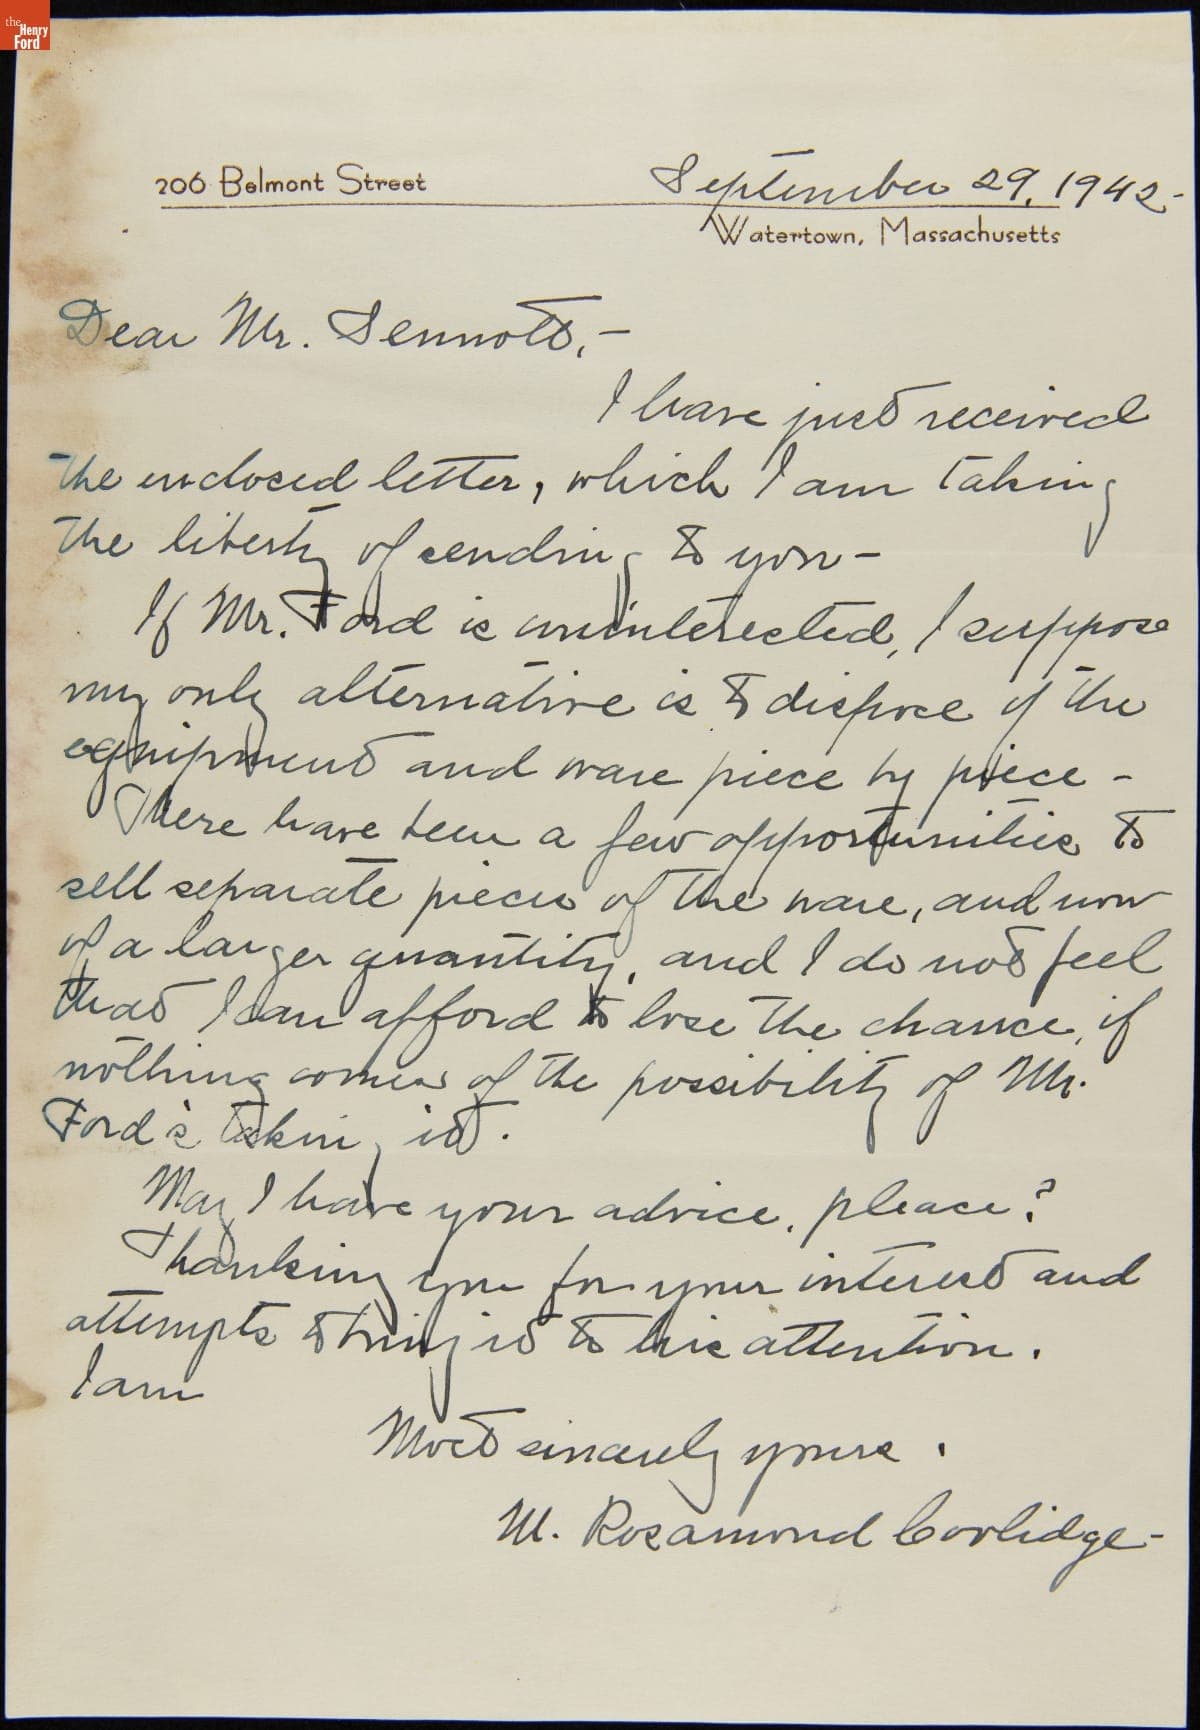 the
Henry
Ford
206 Belmont Street
September 29, 1942-
Watertown, Massachusetts
Dear Mr. Sennott,-
I have just received
the enclosed letter, which I am taking
the liberty of sending to you-
If Mr. Ford is uninterested, I suppose
my only alternative is to dispose of the
equipment and ware piece by piece-
There have been a few opportunities to
sell separate pieces of the ware, and now
of a larger quantity, and I do not feel
that I can afford to lose the chance, if
nothing comes of the possibility of Mr.
Ford's taking it.
May I have your advice, please?
Thanking you for your interest and
attempts to bring it to his attention.
I am
Most sincerely yours.
M. Rosamond Coolidge-